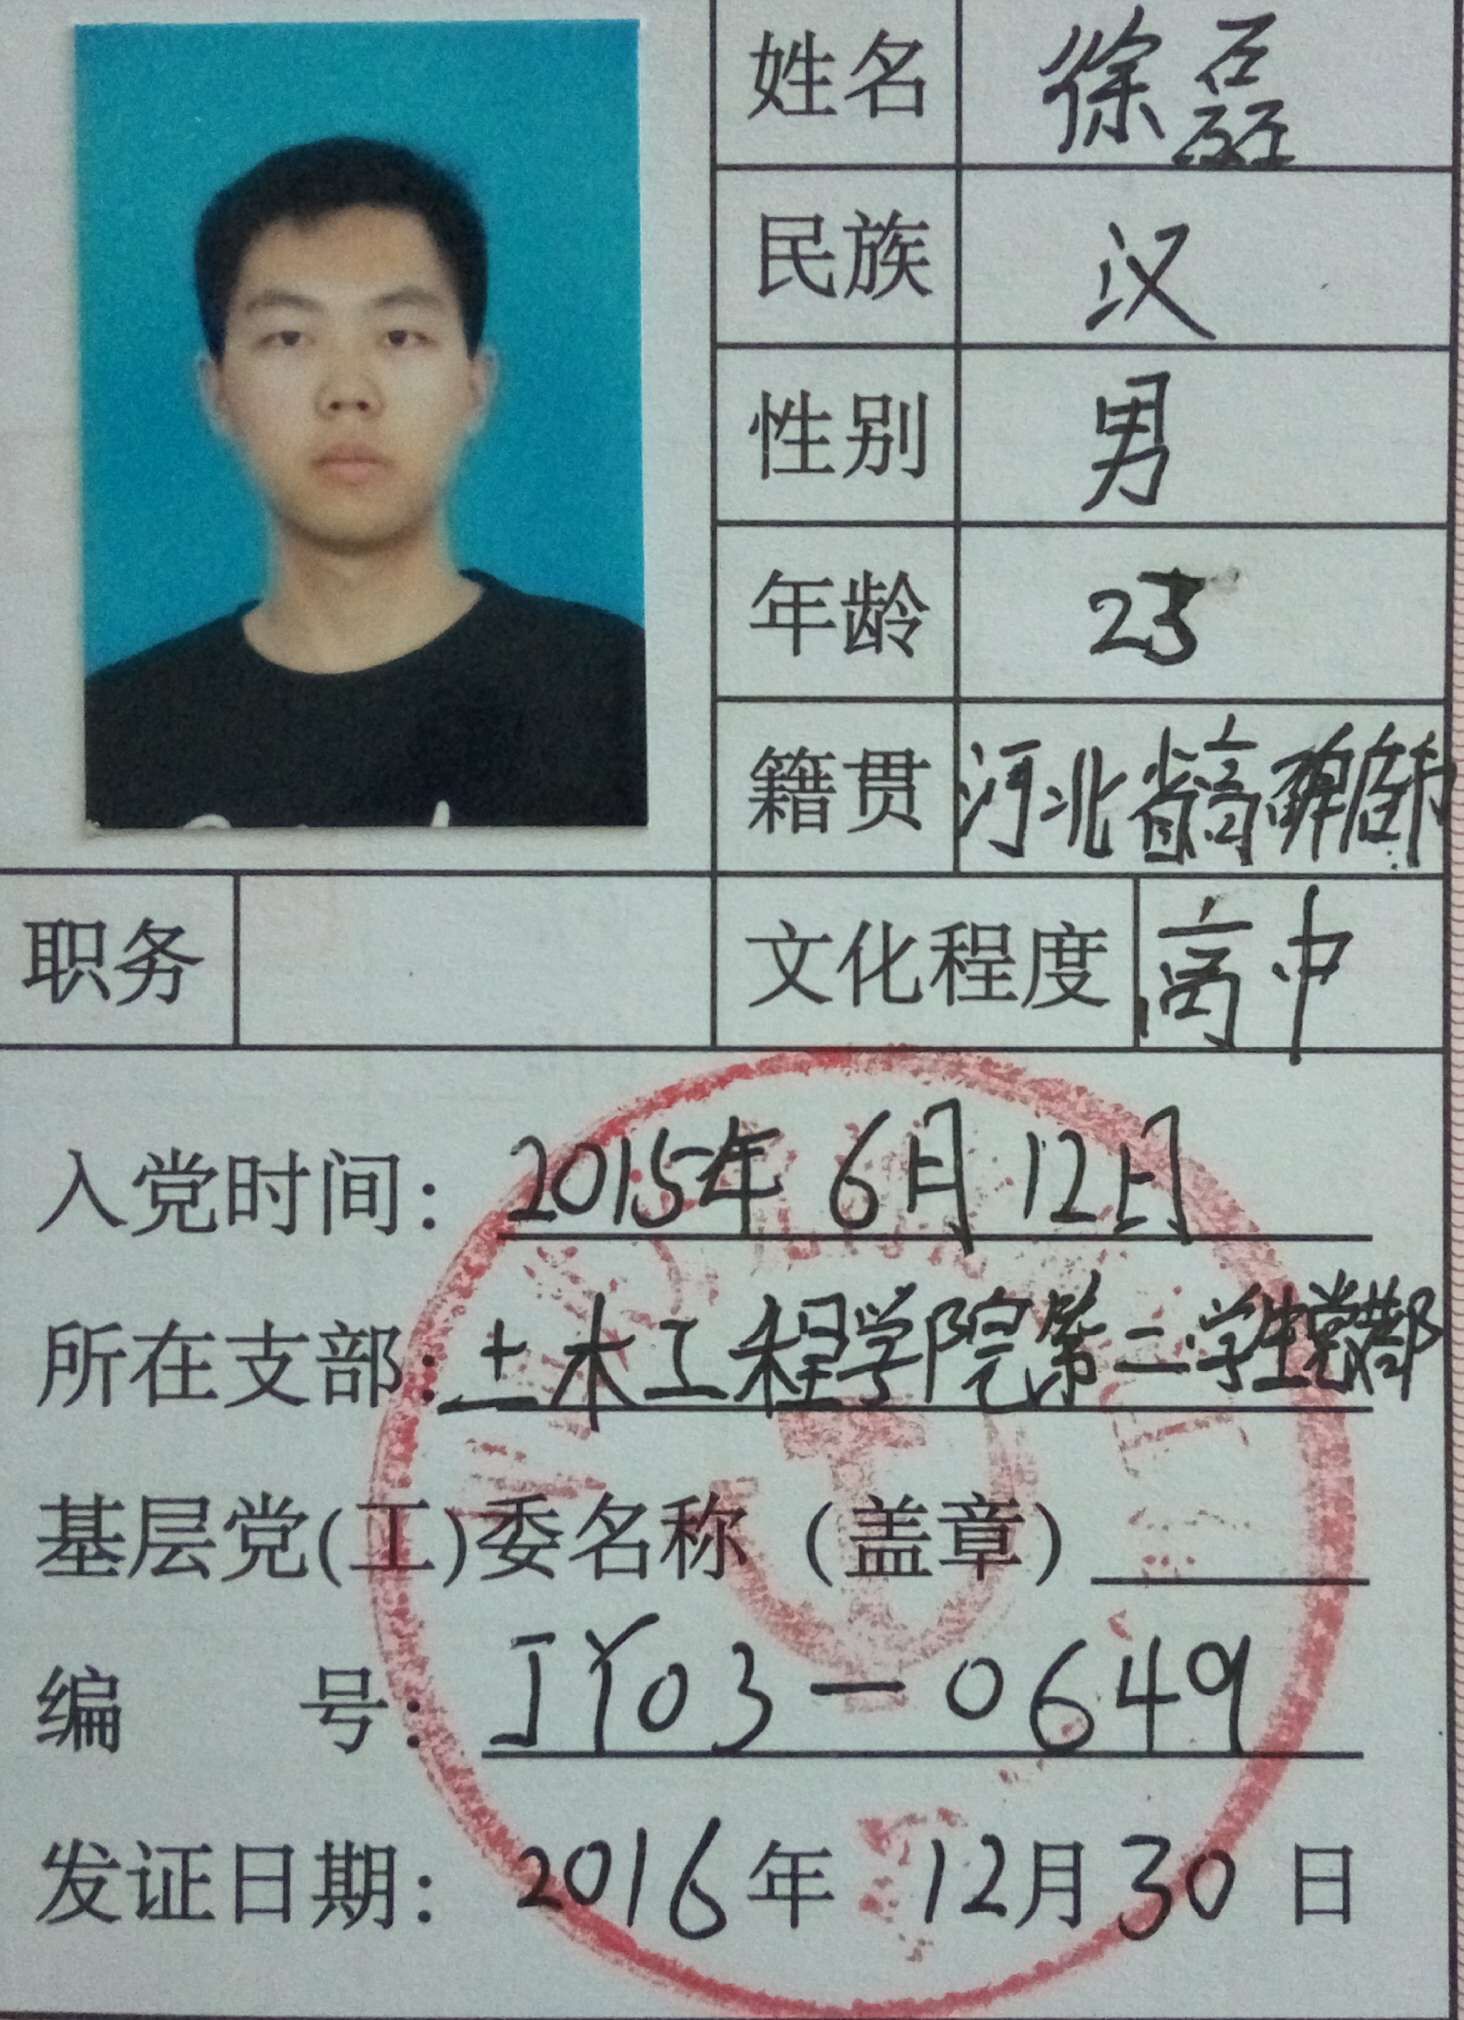 姓名 徐磊
民族 汉
性别 男
年龄 23
籍贯 河北省高碑店市
职务 文化程度 高中
入党时间：2015年6月12日
所在支部：土木工程学院第二学生党支部
基层党(工)委名称（盖章）
编 号：JY03-0649
发证日期：2016年12月30日